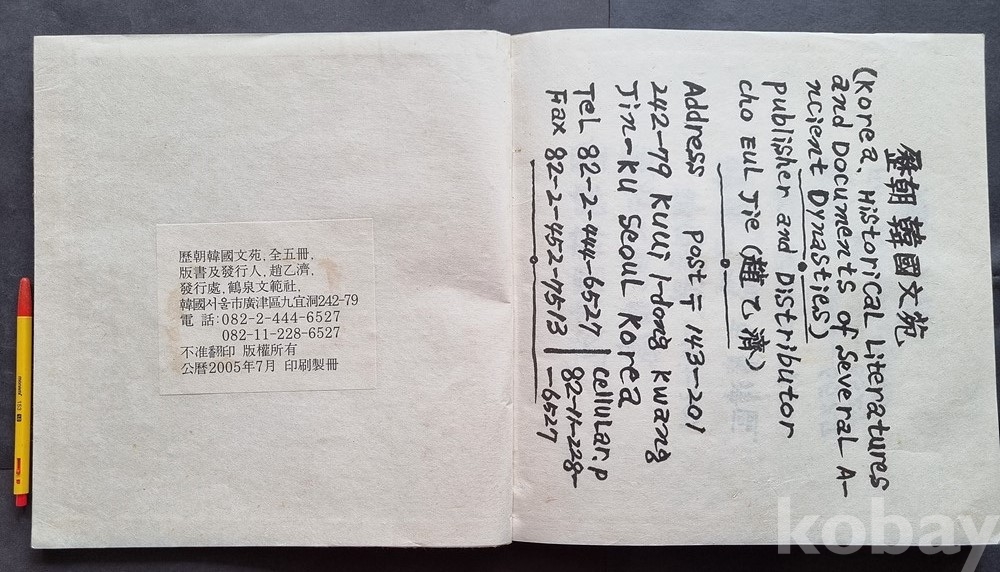 歷朝韓國文苑, 全五冊,
版書及發行人, 趙乙濟,
發行處, 鶴泉文範社,
韓國서울市廣津區九宜洞242-79
電 話:082-2-444-6527
082-11-228-6527
不准翻印 版權所有
公曆2005年7月 印刷製冊
歷朝韓國文苑
(Korea, Historical Literatures
and Documents of Several A-
ncient Dynasties)
publisher and Distributor
cho Eul Jie (趙乙濟)
Address post〒143-201
242-79 Kuui 1-dong Kwang
Jin-Ku Seoul Korea
Tel 82-2-444-6527 | cellular.p
82-11-228-
Fax 82-2-452-7513 | -6527
kobay